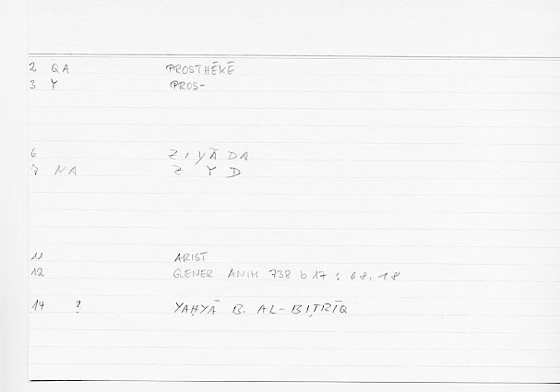 2 QA PROSTHĒKĒ
3 Y PROS-
6 ZIYĀDA
7 NA Z Y D
11 ARIST
12 GENER ANIM 738 b 17 : 68.18
14 ? YAḤYĀ B. AL-BIṬRĪQ